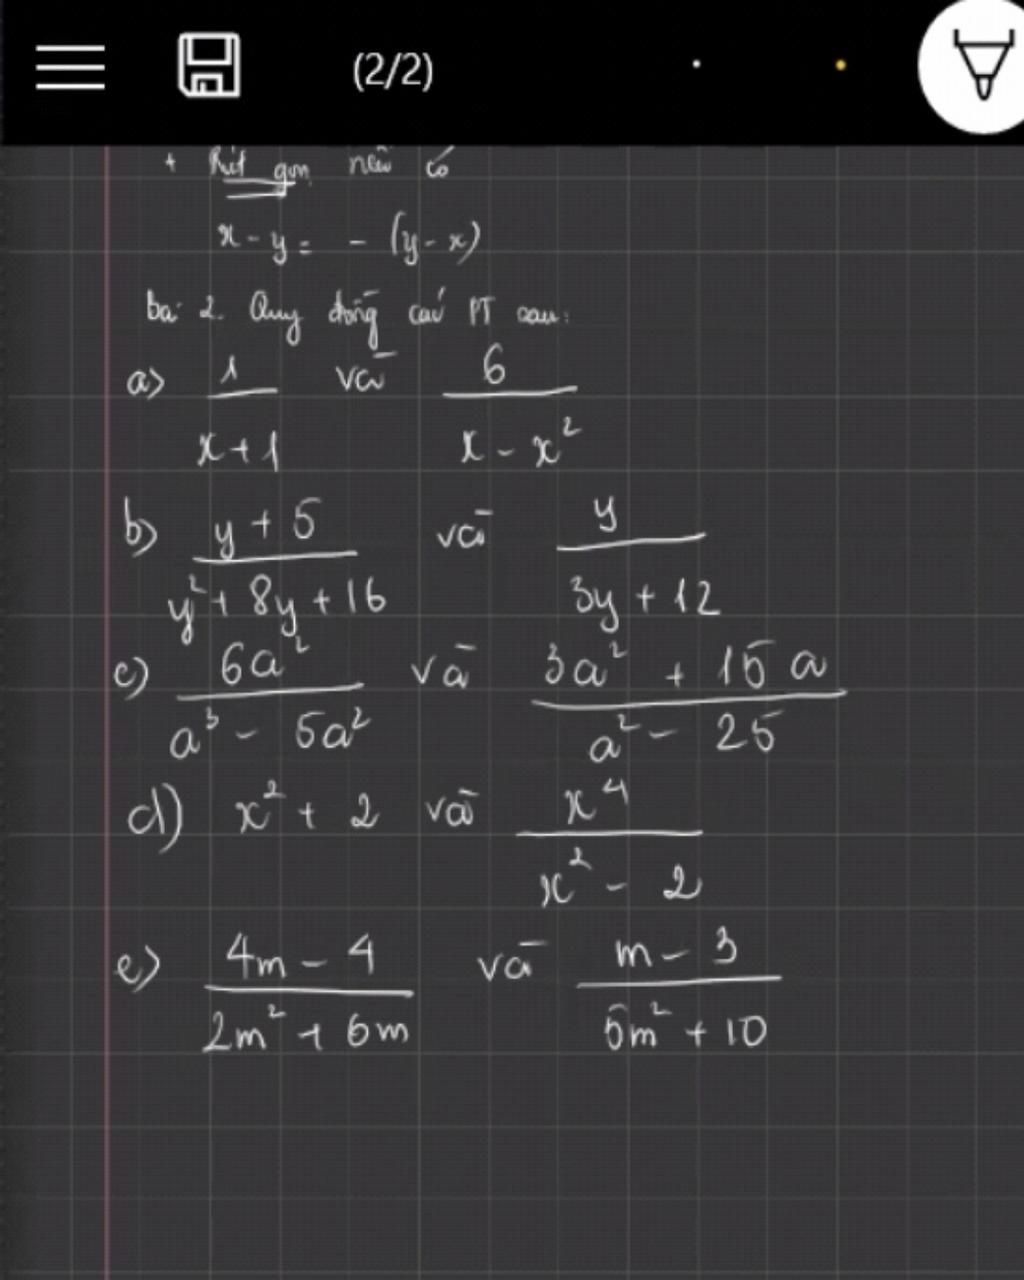 (2/2)
+ Rút gọn nếu có
x - y = - (y - x)
bài 2. Quy đồng các PT sau:
a) 1/(x + 1) và 6/(x - x²)
b) (y + 5)/(y² + 8y + 16) và y/(3y + 12)
c) 6a²/(a³ - 5a²) và (3a² + 15a)/(a² - 25)
d) x² + 2 và x⁴/(x² - 2)
e) (4m - 4)/(2m² + 6m) và (m - 3)/(5m² + 10)